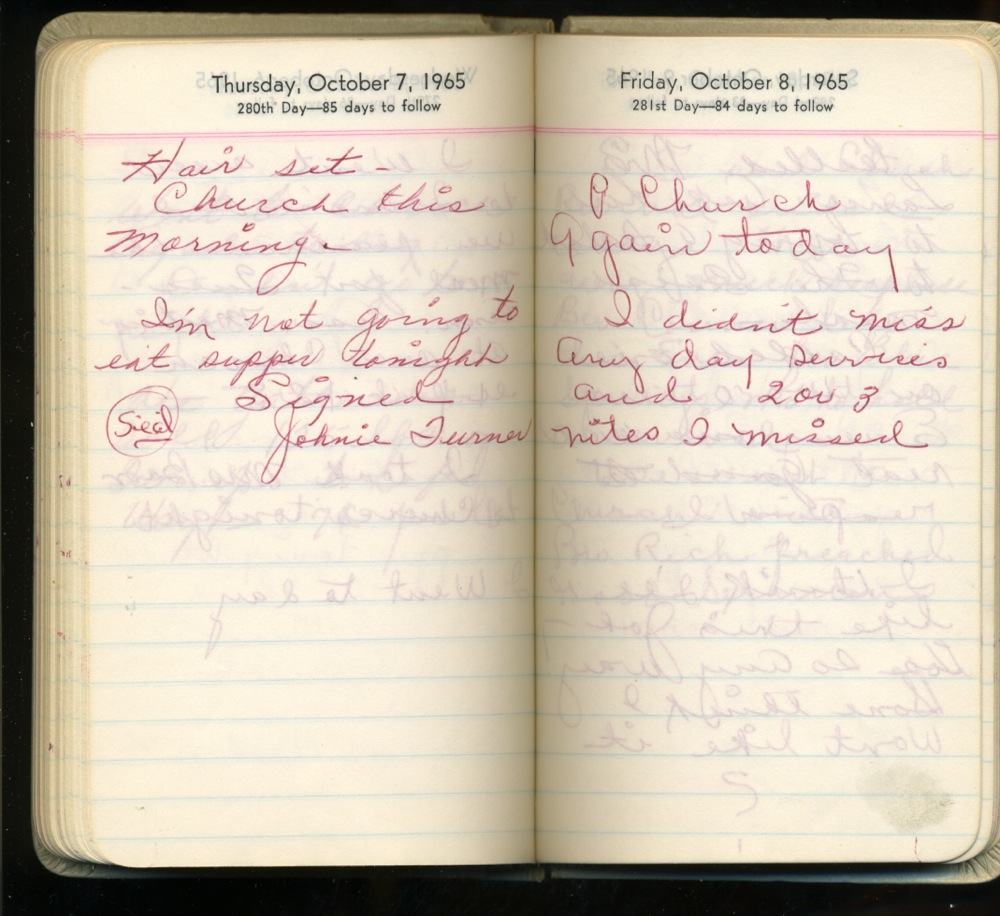 Thursday, October 7, 1965
280th Day—85 days to follow
Hair set -
Church this
Morning.
I'm not going to
eat supper tonight
Signed
Johnie Turner
Friday, October 8, 1965
281st Day—84 days to follow
P Church
Again today
I didn't miss
any day services
and 2 or 3
nites I missed